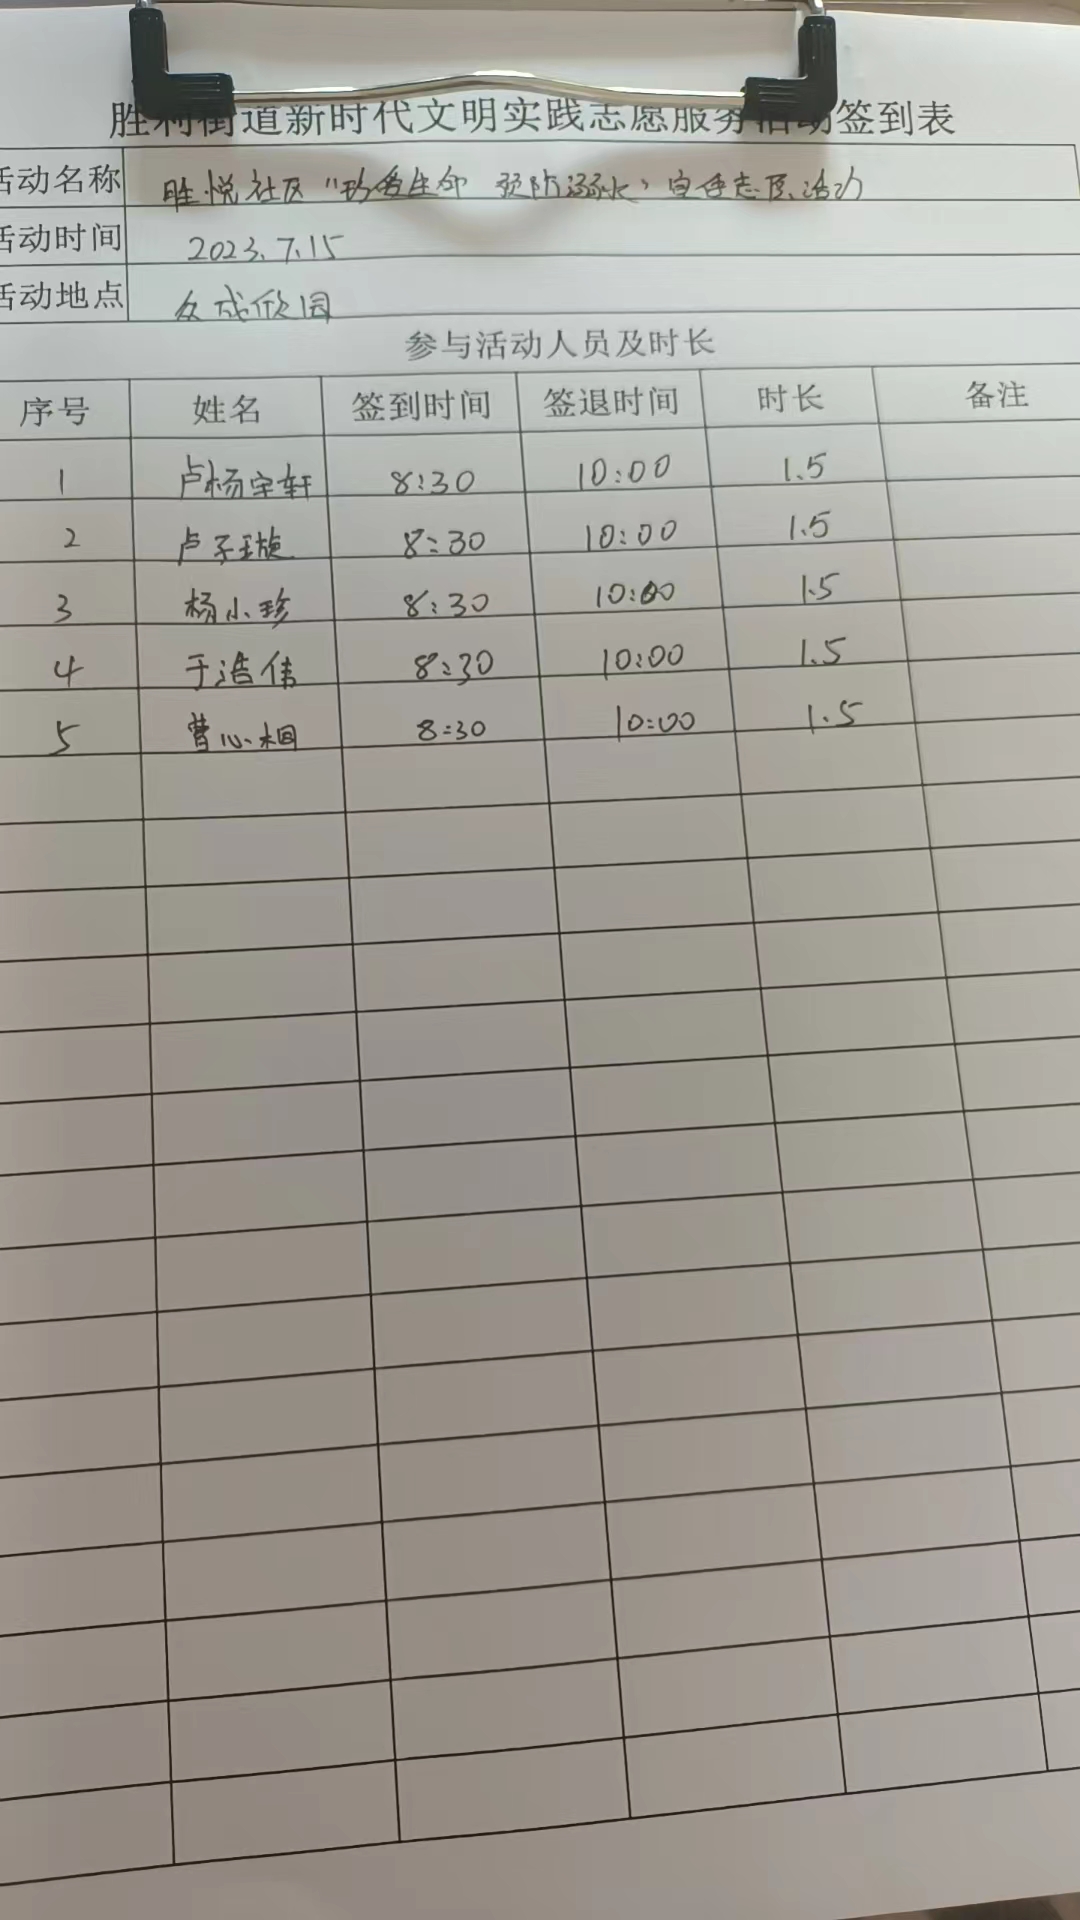 胜利街道新时代文明实践志愿服务活动签到表
活动名称 胜悦社区“珍爱生命 预防溺水”宣传志愿活动
活动时间 2023.7.15
活动地点 众成欣园
参与活动人员及时长
序号 姓名 签到时间 签退时间 时长 备注
1 卢杨宇轩 8:30 10:00 1.5
2 卢子璇 8:30 10:00 1.5
3 杨小珍 8:30 10:00 1.5
4 于浩伟 8:30 10:00 1.5
5 曹心 8:30 10:00 1.5